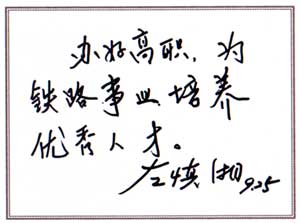 办好高职，为
铁路事业培养
优秀人才。
左慎 9.25